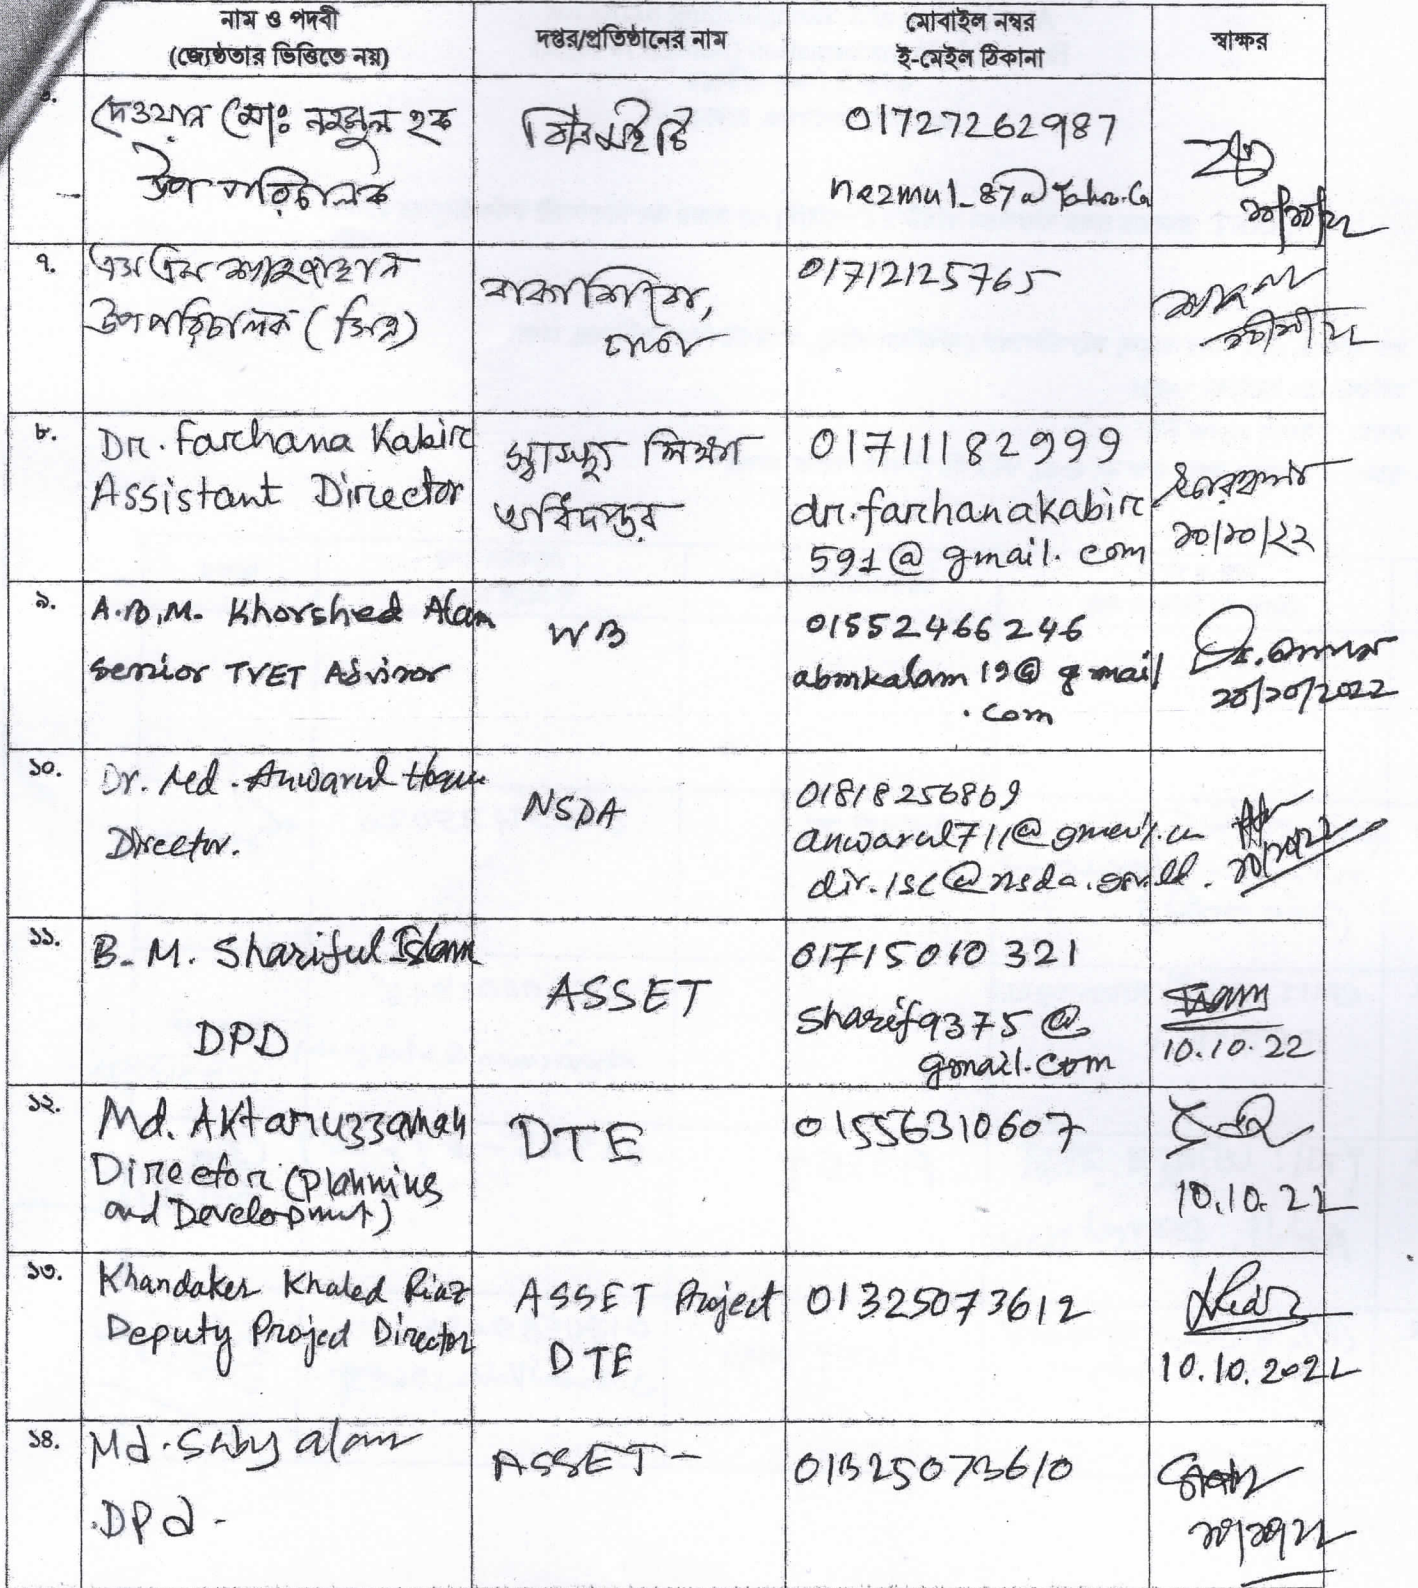 নাম ও পদবী
(জ্যেষ্ঠতার ভিত্তিতে নয়)
দপ্তর/প্রতিষ্ঠানের নাম
মোবাইল নম্বর
ই-মেইল ঠিকানা
স্বাক্ষর
দেওয়ান মোঃ নজমুল হক
উপ পরিচালক
বিএমইটি
01727262987
১০/১০/২২
৭.
এস এম শাহজাহান
উপপরিচালক
বাকাশিবো,
ঢাকা
01712125765
৮.
Dr. Farhana Kabir
Assistant Director
স্বাস্থ্য শিক্ষা
অধিদপ্তর
01711182999
dr.farhanakabir
591@gmail.com
১০/১০/২২
৯.
A.B.M. Khorshed Alam
Senior TVET Advisor
WB
01552466246
abmkalam19@gmail
.com
১০/১০/2022
১০.
Dr. Md. Anwarul Hoque
Director.
NSDA
01818256869
১০/১০/২২
১১.
B. M. Shariful Islam
DPD
ASSET
01715010321
sharif9375@
gmail.com
10.10.22
১২.
Md. Aktaruzzaman
Director (Planning
and Development)
DTE
01556310607
10.10.22
১৩.
Khandaker Khaled Riaz
Deputy Project Director
ASSET Project
DTE
01325073612
10.10.2022
১৪.
Md.
DPd -
ASSET -
01325073610
১০/১০/২২